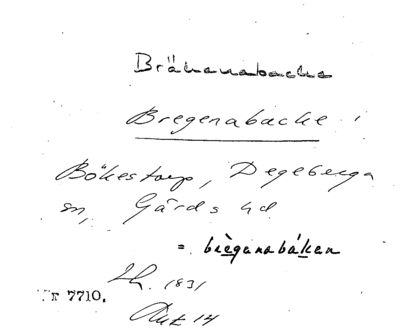 Brähenabacke
Bregenabacke
Bökestorp, Degeberga
sn, Gärds hd
= brègenabáken
Lh. 1831
Nr 7710.
14